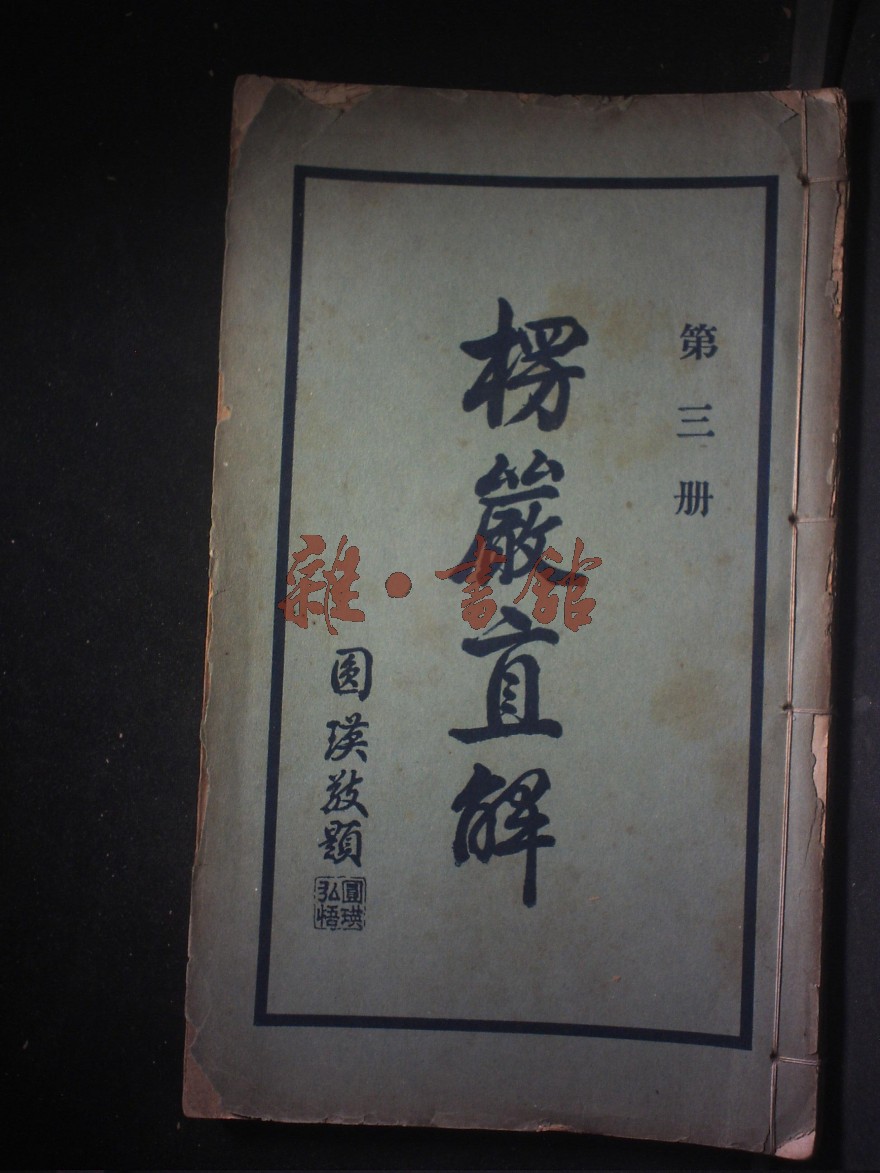 第三册
楞嚴直解
圆瑛敬題
圓瑛弘悟
雜·書館